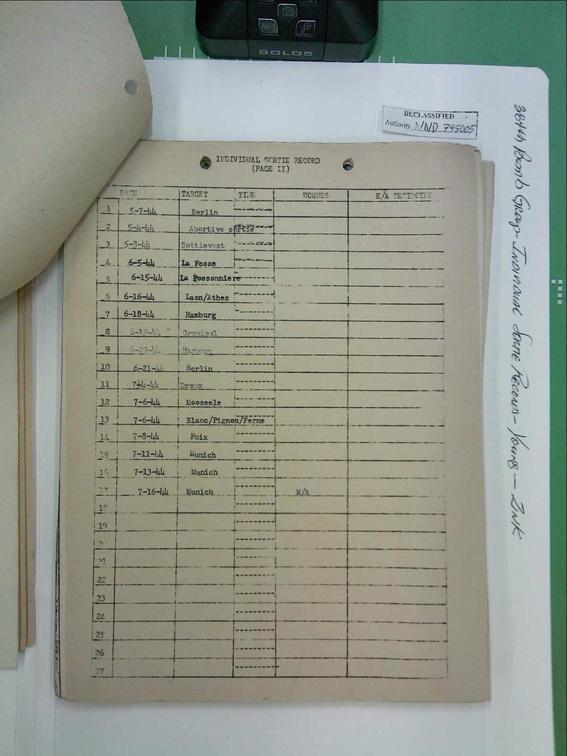 SOLOS
DECLASSIFIED
Authority NND 795005
384th Bomb Group - Individual Sortie Records - Young - Zink
INDIVIDUAL SORTIE RECORD
(PAGE II)
DATE TARGET TIME WOUNDS E/A DESTROYED
1 5-7-44 Berlin
2 5-4-44 Abortive sortie
3 Sottievast
4 6-5-44 La Fosse
5 6-15-44 La Possonniere
6 6-16-44 Laon/Athes
7 6-18-44 Hamburg
8 6-19-44
9 6-20-44 Hamburg
10 6-21-44 Berlin
11 Dreux
12 7-6-44 Moeseele
13 7-6-44 Blanc/Pignon/Ferne
14 7-8-44 Poix
15 7-11-44 Munich
16 7-13-44 Munich
17 7-16-44 Munich M/A
18
19
20
21
22
23
24
25
26
27